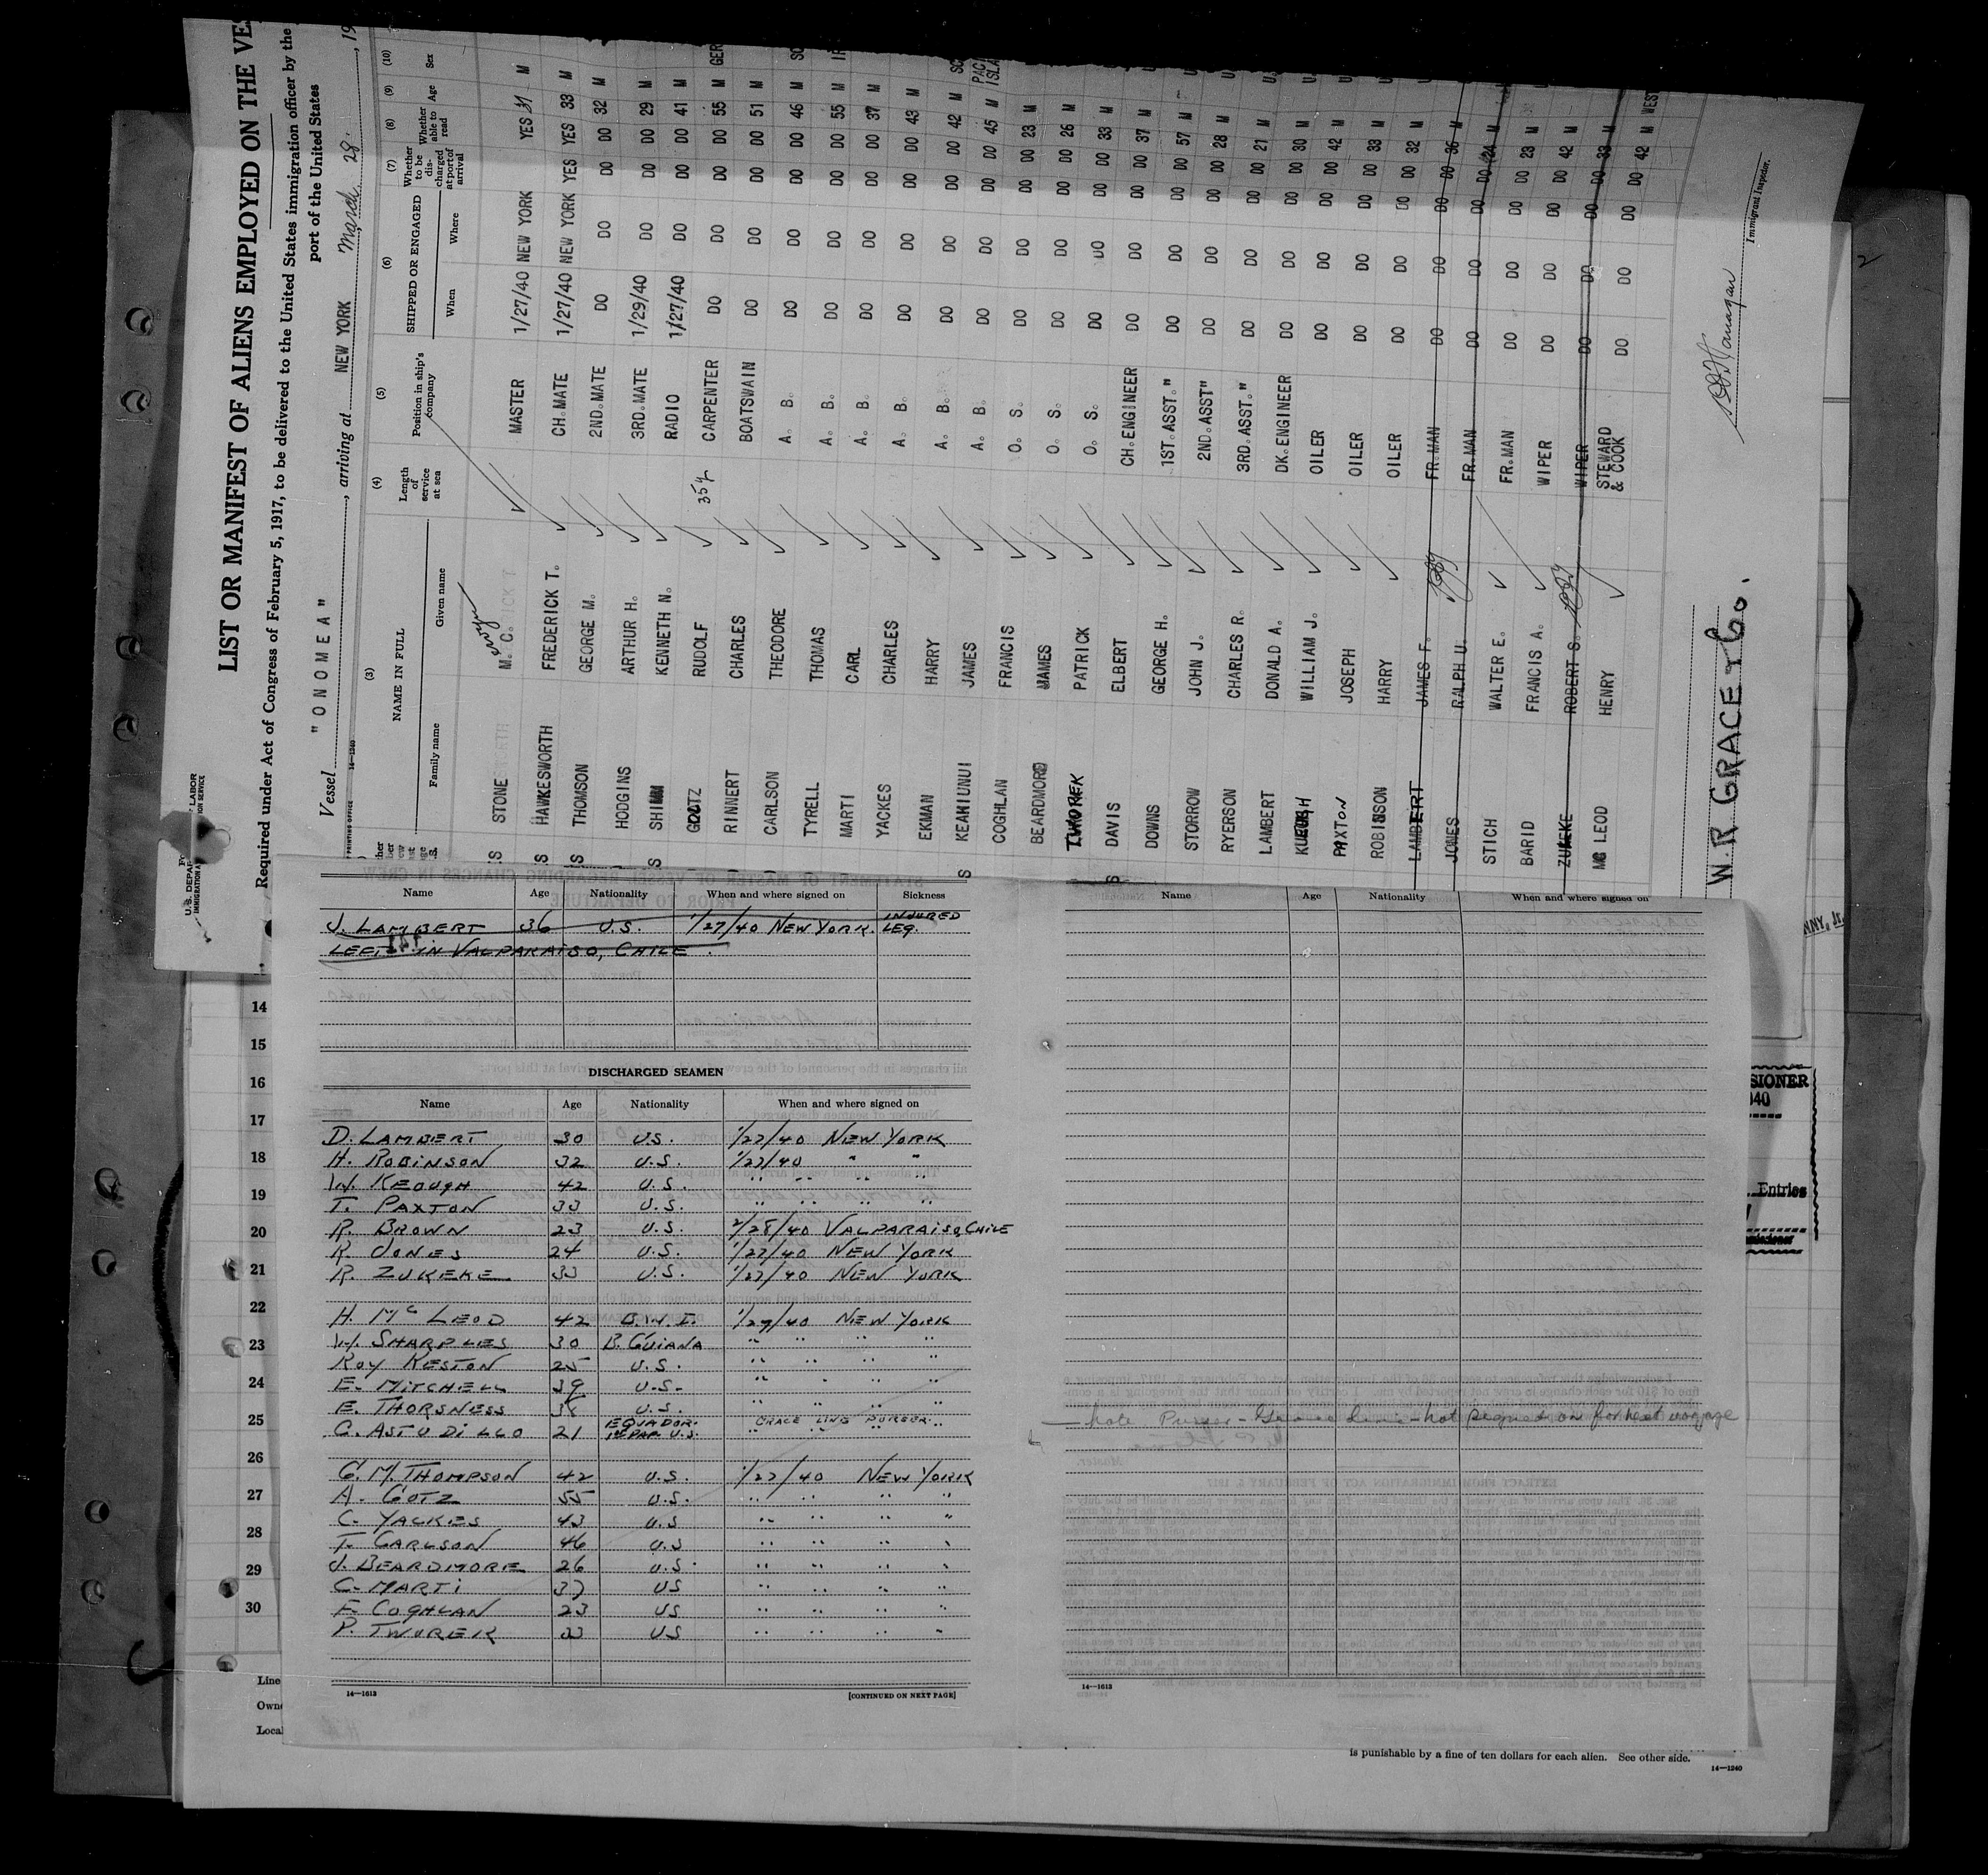 LIST OR MANIFEST OF ALIENS EMPLOYED ON THE VES
Required under Act of Congress of February 5, 1917, to be delivered to the United States immigration officer by the
port of the United States
Vessel "ONOMEA", arriving at NEW YORK March 28, 19
(3) (4) (5) (6) (7) (8) (9) (10)
NAME IN FULL Length of service at sea Position in ship's company SHIPPED OR ENGAGED Whether to be discharged at port of arrival Whether able to read Age Sex
Family name Given name When Where
STONE M. C. MASTER 1/27/40 NEW YORK YES 31 M
HAWKESWORTH FREDERICK T. CH. MATE 1/27/40 NEW YORK YES YES 33 M
THOMSON GEORGE M. 2ND. MATE DO DO DO DO 32 M
HODGINS ARTHUR H. 3RD. MATE 1/29/40 DO DO DO 29 M
SHIMM KENNETH N. RADIO 1/27/40 DO DO DO 41 M
GOTZ RUDOLF 35 y CARPENTER DO DO DO DO 55 M GER
RINNERT CHARLES BOATSWAIN DO DO DO DO 51 M
CARLSON THEODORE A. B. DO DO DO DO 46 M SC
TYRELL THOMAS A. B. DO DO DO DO 55 M IR
MARTI CARL A. B. DO DO DO DO 37 M
YACKES CHARLES A. B. DO DO DO DO 43 M
EKMAN HARRY A. B. DO DO DO DO 42 M SC
KEAKIUNUI JAMES A. B. DO DO DO DO 45 M PAC ISLA
COGHLAN FRANCIS O. S. DO DO DO DO 23 M
BEARDMORE JAMES O. S. DO DO DO DO 26 M
TWOREK PATRICK O. S. DO DO DO DO 33 M
DAVIS ELBERT CH. ENGINEER DO DO DO DO 37 M
DOWNS GEORGE H. 1ST. ASST." DO DO DO DO 57 M
STORROW JOHN J. 2ND. ASST" DO DO DO DO 28 M
RYERSON CHARLES R. 3RD. ASST." DO DO DO DO 21 M
LAMBERT DONALD A. DK. ENGINEER DO DO DO DO 30 M
WILLIAM J. OILER DO DO DO DO 42 M
PAXTON JOSEPH OILER DO DO DO DO 33 M
ROBINSON HARRY OILER DO DO DO DO 32 M
LAMBERT JAMES F. FR. MAN DO DO DO DO 36 M
JONES RALPH U. FR. MAN DO DO DO DO 24 M
STICH WALTER E. FR. MAN DO DO DO DO 23 M
BARID FRANCIS A. WIPER DO DO DO DO 42 M
ZUKEKE ROBERT S. WIPER DO DO DO DO 33 M
MC LEOD HENRY STEWARD & COOK DO DO DO DO 42 M WEST
Immigrant Inspector.
W. R GRACE & Co.
Name Age Nationality When and where signed on Sickness
J. LAMBERT 36 U.S. 1/27/40 NEW YORK. INJURED LEG.
LEFT IN VALPARAISO, CHILE.
DISCHARGED SEAMEN
Name Age Nationality When and where signed on
D. LAMBERT 30 U.S. 1/27/40 NEW YORK
H. ROBINSON 32 U.S. 1/27/40 " "
W. KEOUGH 42 U.S. " " " "
T. PAXTON 33 U.S. " " " "
R. BROWN 23 U.S. 2/28/40 VALPARAISO, CHILE
R. JONES 24 U.S. 1/27/40 NEW YORK
R. ZUKEKE 33 U.S. 1/27/40 NEW YORK
H. Mc LEOD 42 B.W.I. 1/27/40 NEW YORK
W. SHARPLES 30 B. GUIANA " " " "
ROY RESTON 25 U.S. " " " "
E. MITCHELL 39 U.S. " " " "
E. THORSNESS 38 U.S. " " " "
G. ASTUDILLO 21 EQUADOR. 1st PAP. U.S. GRACE LINE PURSER.
G. M. THOMPSON 42 U.S. 1/27/40 NEW YORK
A. GOTZ 55 U.S. " " " "
C. YACKES 43 U.S " " " "
T. CARLSON 46 U.S " " " "
J. BEARDMORE 26 U.S. " " " "
C. MARTI 37 US " " " "
F. COGHLAN 23 US " " " "
P. TWOREK 33 US " " " "
14—1613 [CONTINUED ON NEXT PAGE]
Name Age Nationality When and where signed on
note Purser - Grace Line - not signed on for next voyage
14—1613
14
15
16
17
18
19
20
21
22
23
24
25
26
27
28
29
30
Line
Own
Local
SIONER
940
Entries
is punishable by a fine of ten dollars for each alien. See other side.
14—1240